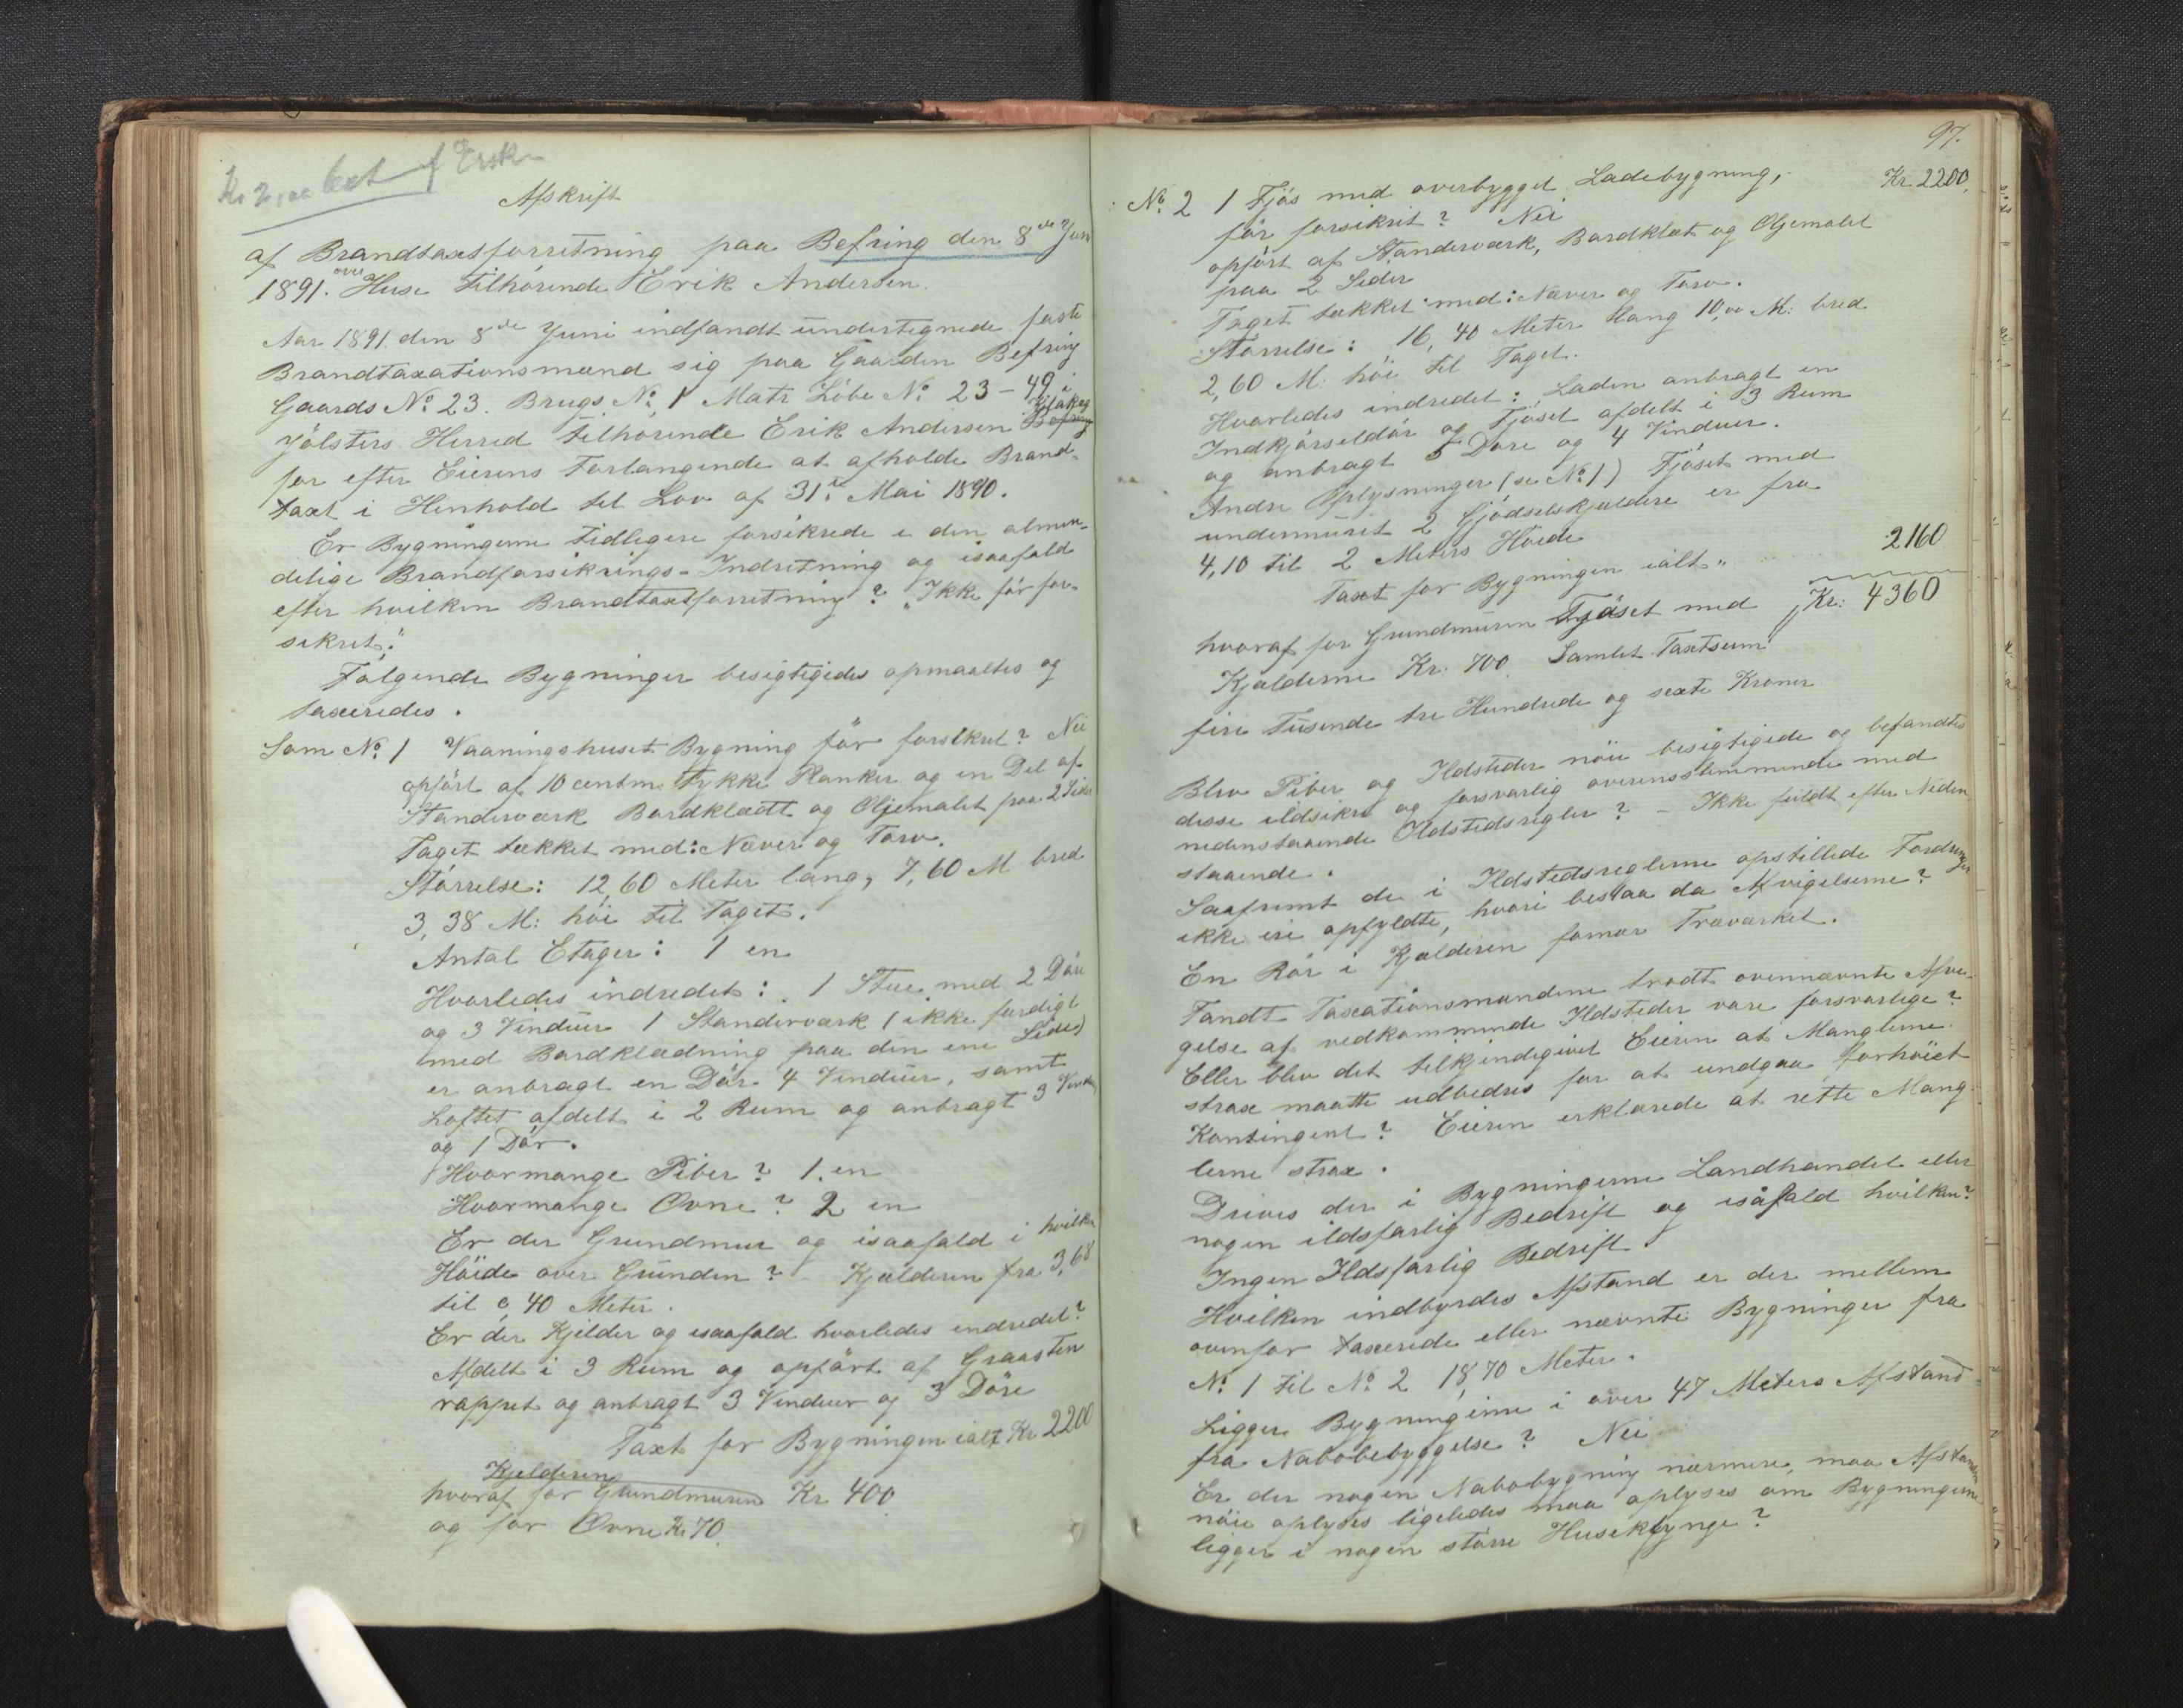 Kr 2,00 bet af Erik
Afskrift
af Brandtaxtforretning paa Befring den 8de Juni
1891. over Huse tilhörende Erik Andersen.
Aar 1891. den 8de Juni indfandt undertegnede faste
Brandtaxationsmænd sig paa Gaarden Befring
Gaards No 23. Brugs No 1 Matr Löbe No 23-49 i
Jölsters Herred tilhörende Erik Andersen Befring
for efter Eierens Forlangende at afholde Brand-
taxt i Henhold til Lov af 31te Mai 1890.
Er Bygningerne tidligere forsikrede i den almin-
delige Brandforsikrings-Indretning og isaafald
efter hvilken Brandtaxtforretning? "Ikke för for-
sikret."
Fölgende Bygninger besigtigedes opmaaltes og
taxeredes.
Som No 1 Vaaningshuset Bygning för forsikret? Nei
opfört af 10 centm. tykke Planker og en Del af
Standerværk Bordklædt og Oljemalet paa 2 Sider
Taget tækket med: Næver og Torv.
Störrelse: 12,60 Meter lang, 7,60 M bred
3,38 M: höi til Taget.
Antal Etager: 1 en
Hvorledes indredet: 1 Stue med 2 Döre
og 3 Vinduer 1 Standerværk (ikke færdigt
med Bordklædning paa den ene Side)
er anbragt en Dör 4 Vinduer, samt
Loftet afdelt i 2 Rum og anbragt 3 Vinduer
og 1 Dör.
Hvormange Piber? 1. en
Hvormange Ovne? 2 en
Er der Grundmur og isaafald i hvilken
Höide over Grunden? - Kjelderen fra 3,68
til 0,40 Meter.
Er der Kjelder og isaafald hvorledes indredet?
Afdelt i 3 Rum og opfört af Graasten
rappet og anbragt 3 Vinduer og 3 Döre
Taxt for Bygningen ialt Kr 2200
Kjelderen
hvoraf for Grundmuren Kr 400
og for Ovne Kr 70.
97.
No 2 1 Fjös med overbygget Ladebygning, Kr. 2200,
för forsikret? Nei
opfört af Standerværk, Bordklæt og Oljemalet
paa 2 Sider
Taget tækket med: Næver og Torv.
Störrelse: 16,40 Meter lang 10,00 M: bred
2,60 M: höi til Taget.
Hvorledes indredet: Laden anbragt en
Indkjörseldör og Fjöset afdelt i 3 Rum
og anbragt 5 Döre og 4 Vinduer.
Andre Oplysninger (se No 1) Fjöset med
undermuret 2 Gjödselskjeldere er fra
4,10 til 2 Meters Höide
Taxt for Bygningen ialt " 2160
hvoraf for Grundmuren Fjöset med Kr: 4360
Kjelderne Kr. 700. Samlet Taxtsum
fire Tusende tre Hundrede og sexti Kroner
Blev Piber og Ildsteder nöie besigtigede og befandtes
disse ildsikre og forsvarlig overensstemmende med
nedenstaaende Ildstedsregler? - Ikke fuldt efter Neden-
staaende.
Saafremt de i Ildstedsreglerne opstillede Fordringer
ikke ere opfyldte, hvori bestaa da Afvigelserne?
En Rör i Kjelderen for nær Træværket.
Fandt Taxationsmændene trodt ovennævnte Afvi-
gelse af vedkommende Ildsteder vare forsvarlige?
Eller blev det tilkjendegivet Eieren at Manglerne
strax maatte udbedres for at undgaa forhöiet
Kontingent? Eieren erklærede at rette Mang-
lerne strax.
Drives der i Bygningerne Landhandel eller
nogen ildsfarlig Bedrift og isåfald hvilken?
Ingen Ildsfarlig Bedrift.
Hvilken indbyrdes Afstand er der mellem
ovenfor taxerede eller nævnte Bygninger fra
No 1 til No 2 18,70 Meter.
Ligger Bygningerne i over 47 Meters Afstand
fra Nabobebyggelse? Nei
Er der nogen Nabobygning nærmere, maa Afstanden
nöie oplyses ligeledes maa oplyses om Bygningerne
ligger i nogen större Huseklynge?